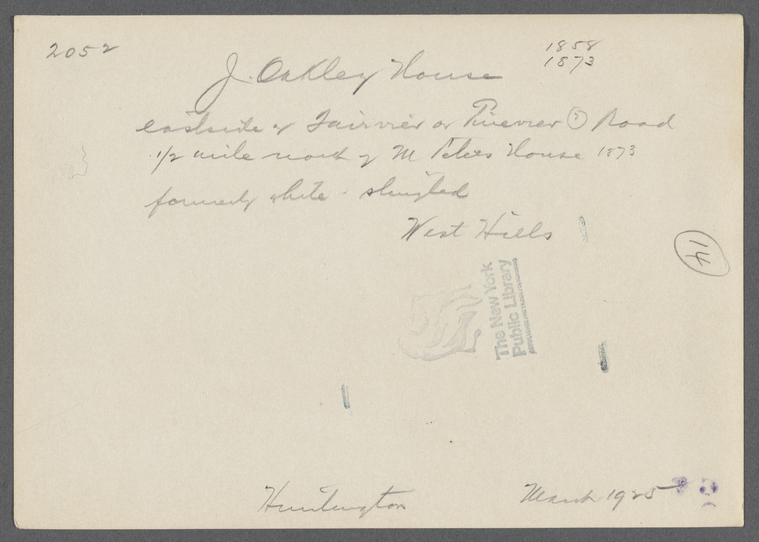 2052
1858
1873
J. Oakley House
eastside of Fairview or Pineview (?) Road
1/2 mile north of M House 1873
formerly white - shingled
West Hills
14
The New York
Public Library
Huntington
March 1925